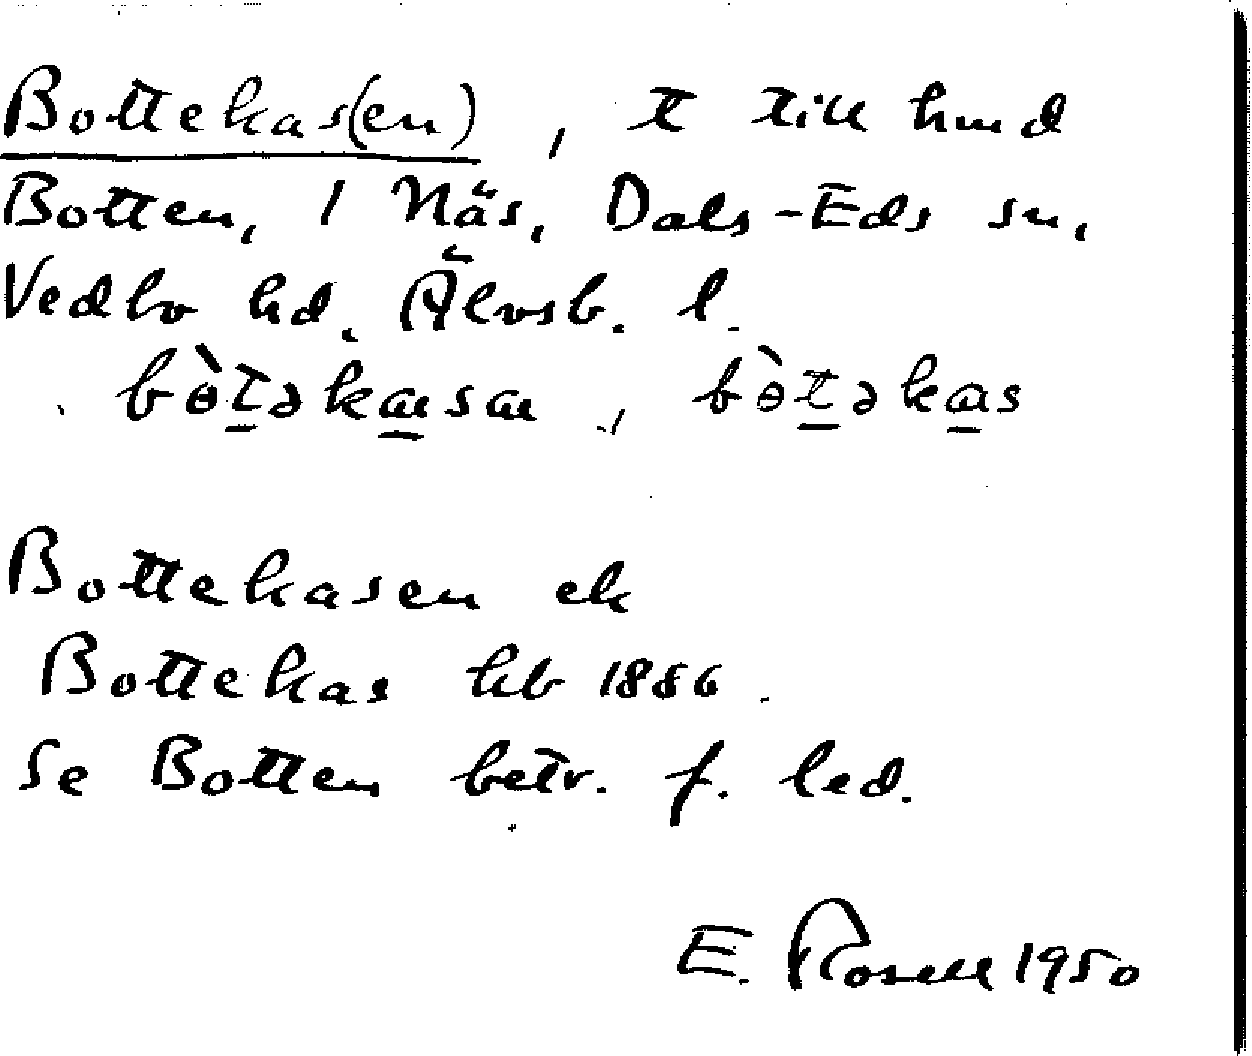 Bottekas(en), t till hmd
Botten, 1 Näs, Dals-Eds sn,
Vedbo hd, Älvsb. l.
bɵ̀t̲əka̲sa, bɵ̀t̲əka̲s
Bottekasen ek
Bottekas hb 1886.
Se Botten betr. f. led.
E. Rosell 1950